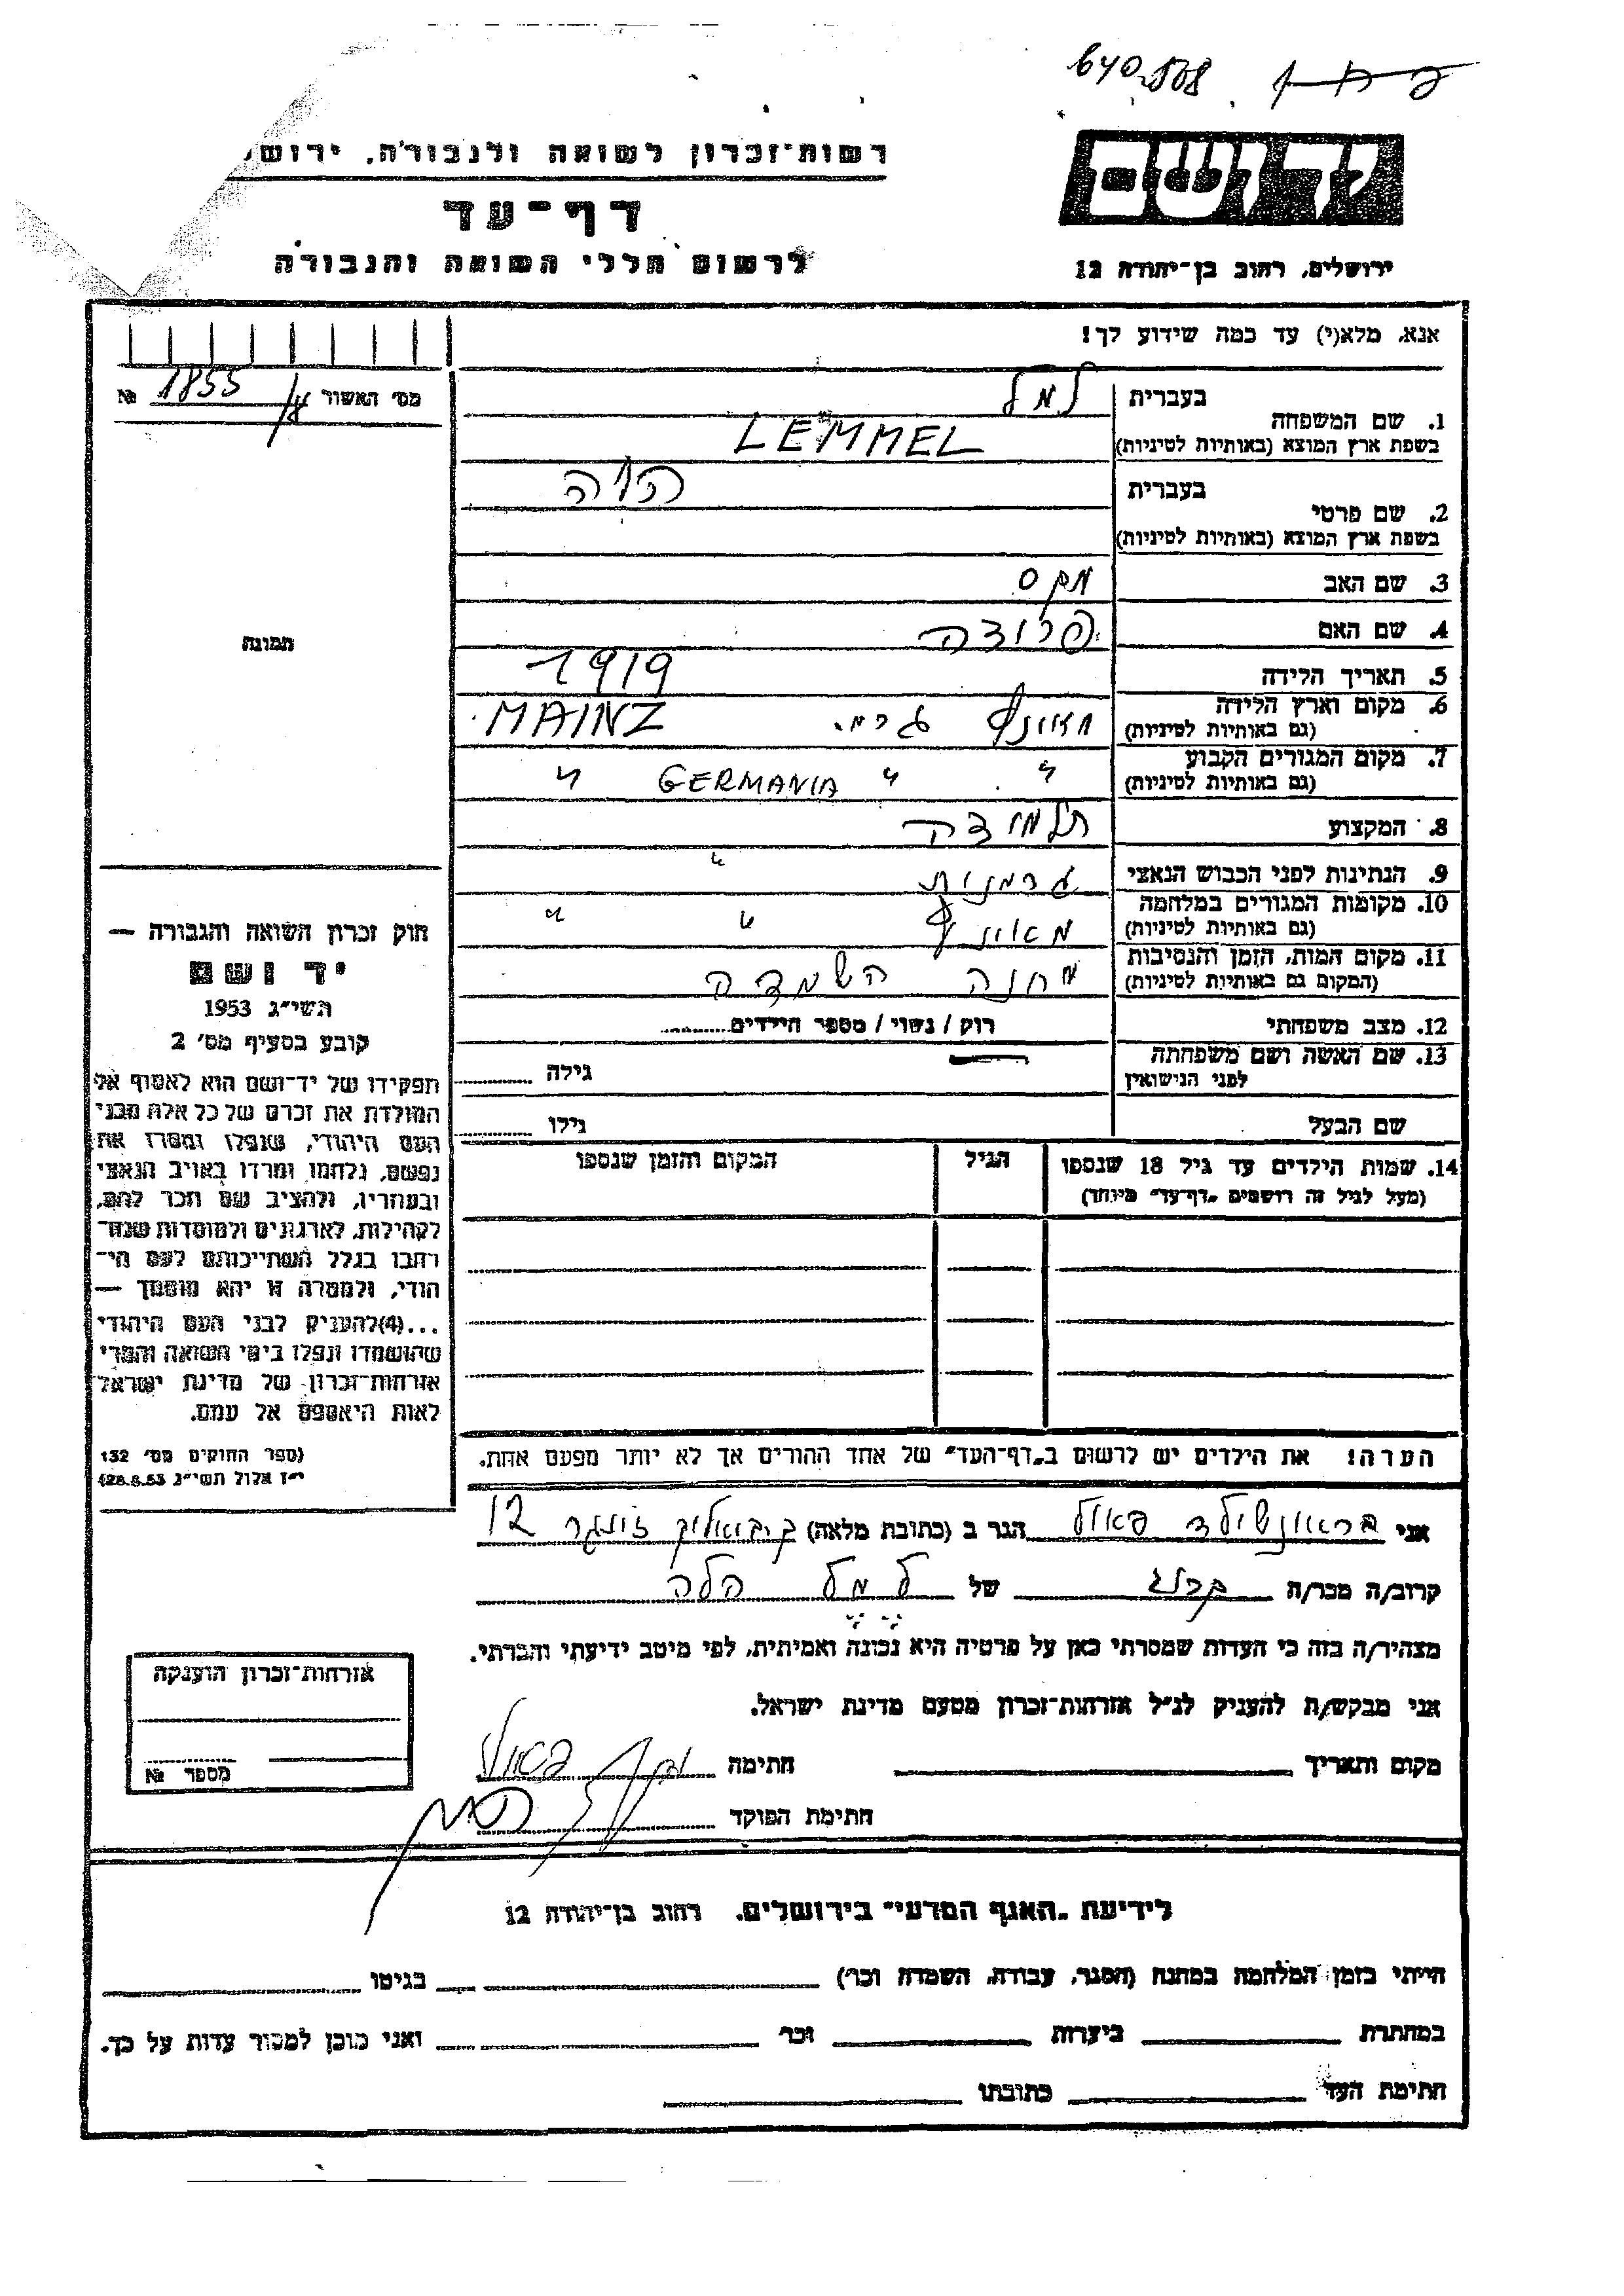 640.808
רשות-זכרון לשואה ולגבורה, ירוש
יד ושם
דף-עד
לרשום חללי השואה והגבורה
ירושלים, רחוב בן-יהודה 12
אנא, מלא(י) עד כמה שידוע לך!
מס' האשור 1855 №
בעברית למל
1. שם המשפחה
בשפת ארץ המוצא (באותיות לטיניות) LEMMEL
בעברית
2. שם פרטי
בשפת ארץ המוצא (באותיות לטיניות)
3. שם האב מקס
4. שם האם פרידה
5. תאריך הלידה 1919
6. מקום וארץ הלידה
(גם באותיות לטיניות) גרמ. MAINZ
7. מקום המגורים הקבוע
(גם באותיות לטיניות) " " GERMANIA "
8. המקצוע תלמידה
9. הנתינות לפני הכבוש הנאצי גרמנית "
10. מקומות המגורים במלחמה
(גם באותיות לטיניות) מאינץ " "
11. מקום המות, הזמן והנסיבות
(המקום גם באותיות לטיניות) מחנה השמדה
12. מצב משפחתי רוק / נשוי / מספר הילדים
13. שם האשה ושם משפחתה
לפני הנישואין גילה
שם הבעל גילו
14. שמות הילדים עד גיל 18 שנספו הגיל המקום והזמן שנספו
(מעל לגיל זה רושמים "דף-עד" מיוחד)
הערה! את הילדים יש לרשום ב"דף-העד" של אחד ההורים אך לא יותר מפעם אחת.
תמונה
חוק זכרון השואה והגבורה —
יד ושם
תשי"ג 1953
קובע בסעיף מס' 2
תפקידו של יד-ושם הוא לאסוף אל
המולדת את זכרם של כל אלה מבני
העם היהודי, שנפלו ומסרו את
נפשם, נלחמו ומרדו באויב הנאצי
ובעוזריו, ולהציב שם וזכר להם,
לקהילות, לארגונים ולמוסדות שנח־
רבו בגלל השתייכותם לעם הי־
הודי, ולמטרה זו יהא מוסמך —
...(4)להעניק לבני העם היהודי
שהושמדו ונפלו בימי השואה והמרי
אזרחות-זכרון של מדינת ישראל
לאות היאספם אל עמם.
(ספר החוקים מס' 132
י"ז אלול תשי"ג 28.8.53)
אני בראונשילד פאול הגר ב (כתובת מלאה) ק. ביאליק זינגר 12
קרוב/ה מכר/ה קרוב של למל הלה
מצהיר/ה בזה כי העדות שמסרתי כאן על פרטיה היא נכונה ואמיתית, לפי מיטב ידיעתי והכרתי.
אני מבקש/ת להעניק לנ"ל אזרחות-זכרון מטעם מדינת ישראל.
מקום ותאריך חתימה פאול
חתימת הפוקד
אזרחות-זכרון הוענקה
מספר №
לידיעת "האגף המדעי" בירושלים, רחוב בן-יהודה 12
הייתי בזמן המלחמה במחנה (הסגר, עבודה, השמדה וכו') בגיטו
במחתרת ביערות וכו' ואני מוכן למסור עדות על כך.
חתימת העד כתובתו